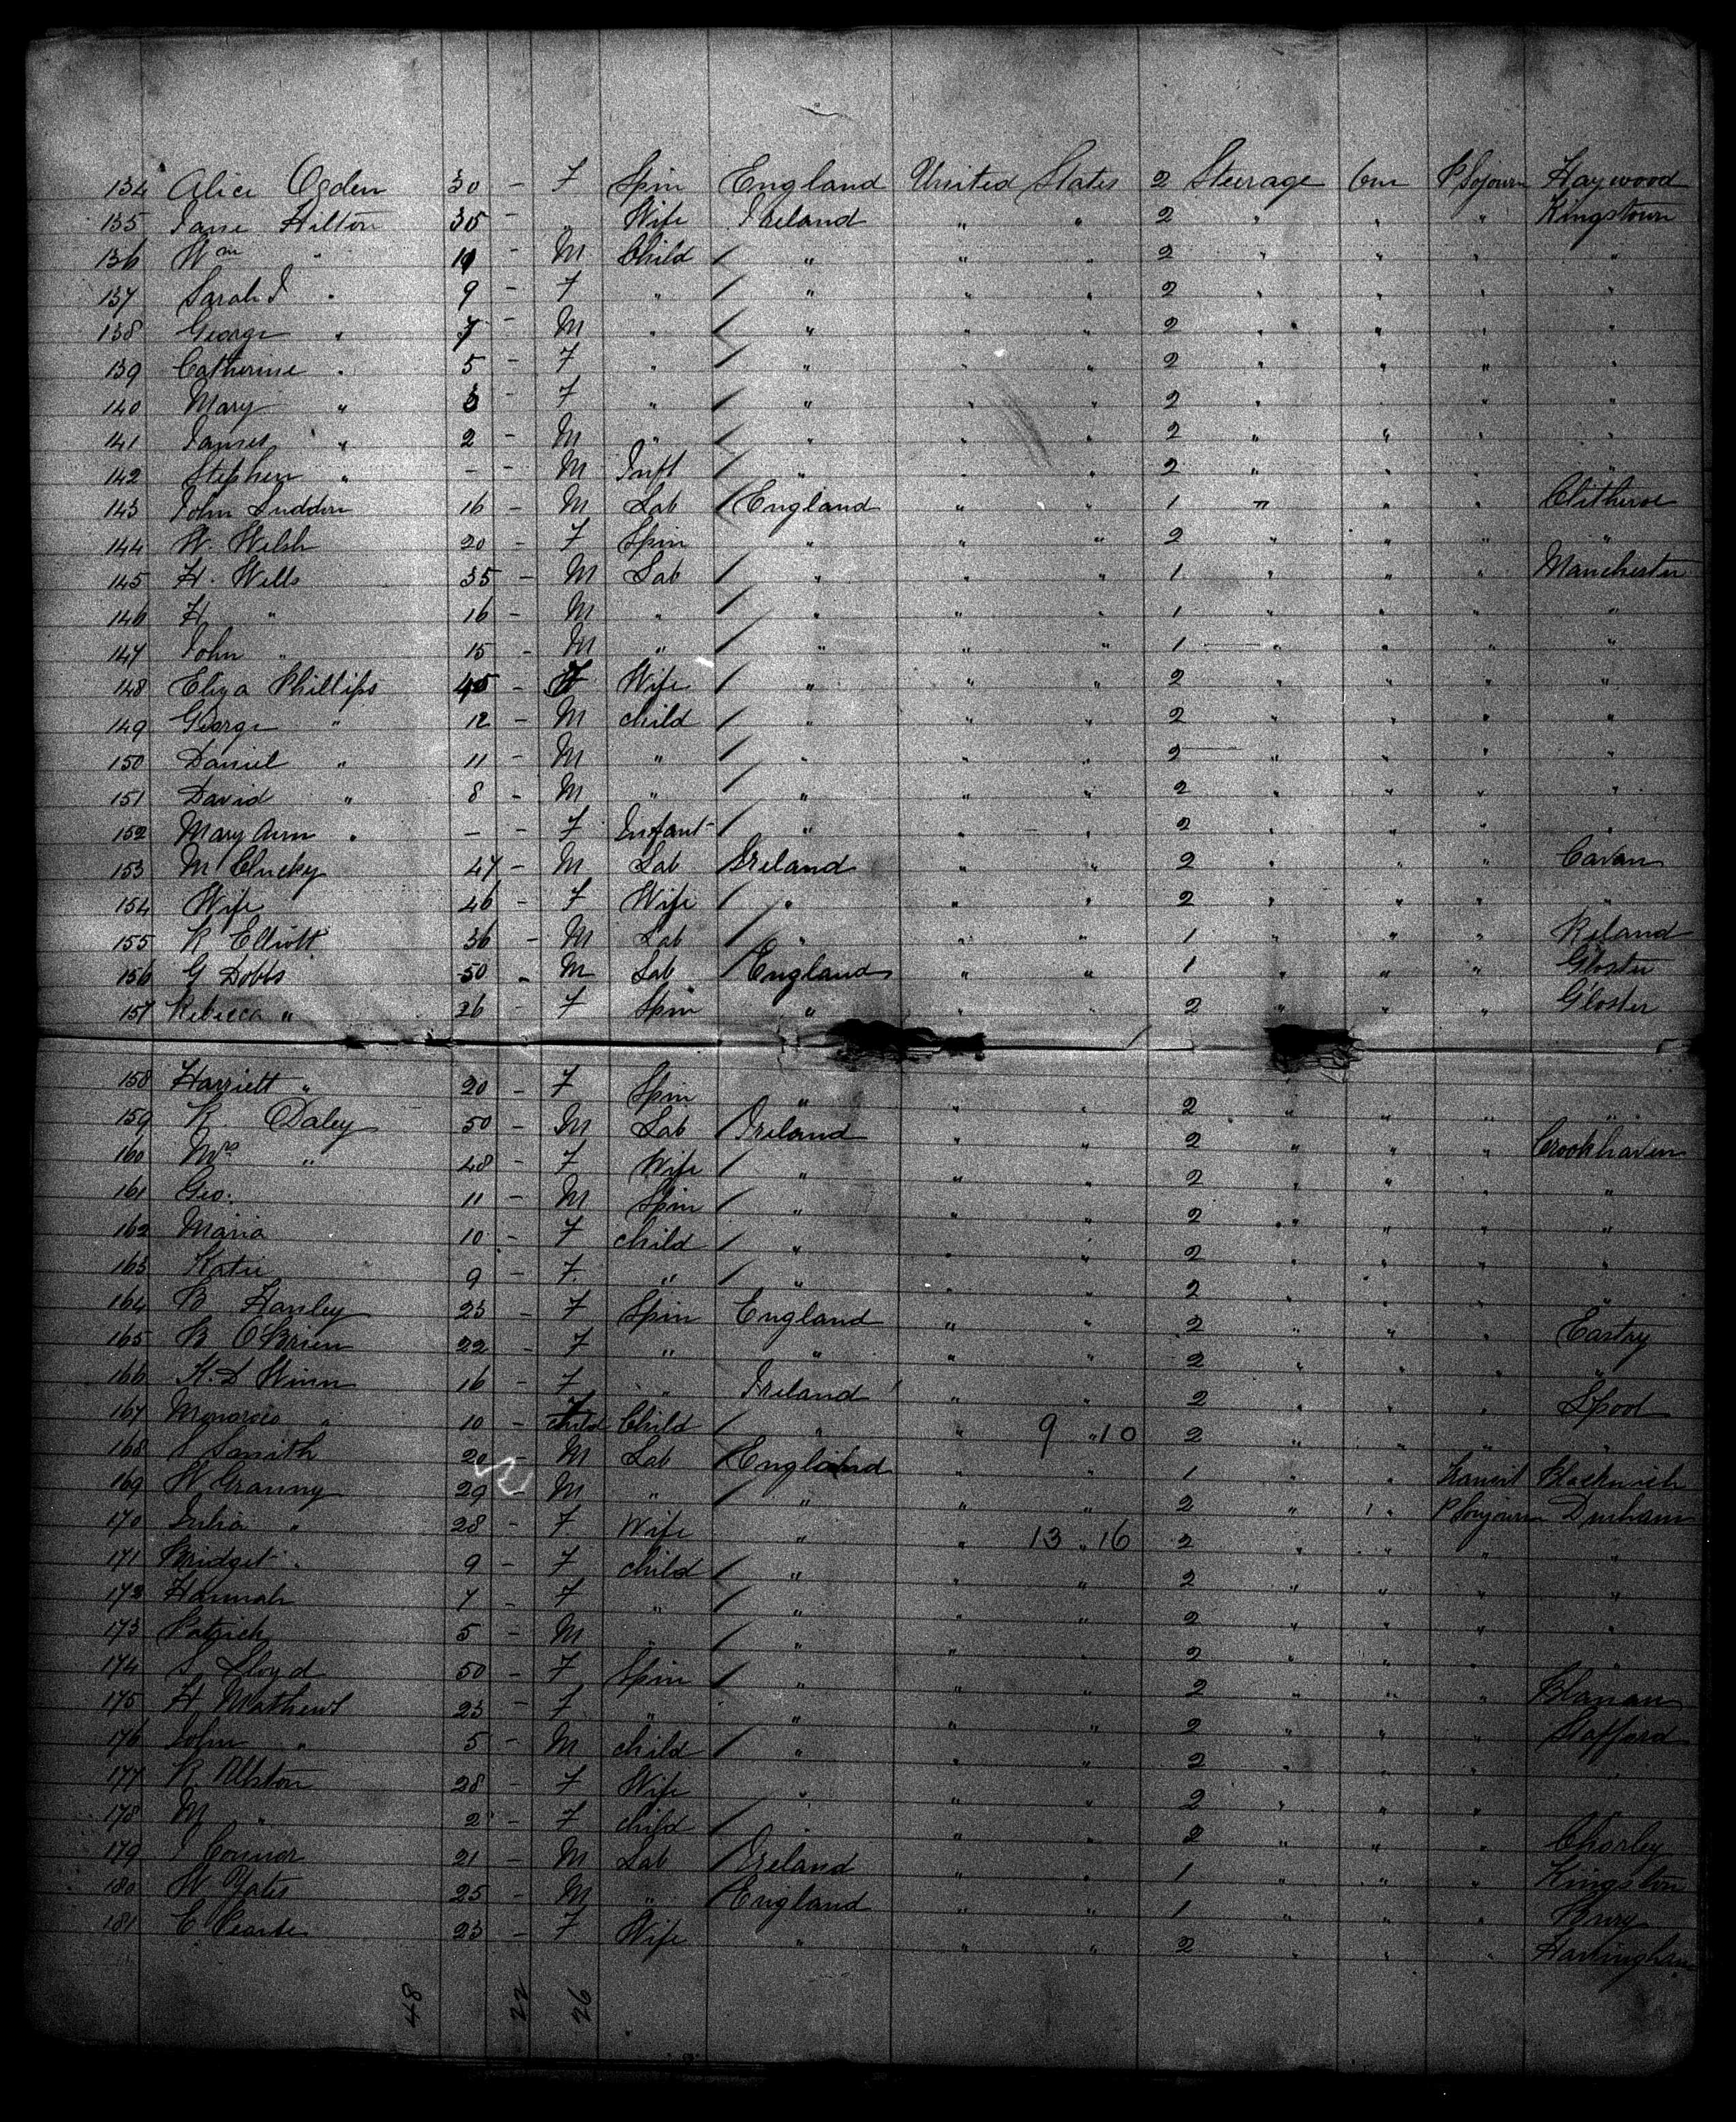 134 Alice Ogden 30 - F Spin England United States 2 Steerage 6m P Sojourn Haywood
135 Jane Hilton 35 - " Wife Ireland " " 2 " " " Kingstown
136 Wm " 11 - M Child / " " " 2 " " " "
137 Sarah J " 9 - F " / " " " 2 " " " "
138 George " 7 - M " / " " " 2 " " " "
139 Catherine " 5 - F " / " " " 2 " " " "
140 Mary " 3 - F " / " " " 2 " " " "
141 James " 2 - M " / " " " 2 " " " "
142 Stephen " - - M Inft / " " " 2 " " " "
143 John 16 - M Lab / England " " 1 " " " Clitheroe
144 W. Welsh 20 - F Spin " " " 2 " " " "
145 H. Wells 35 - M Lab / " " " 1 " " " Manchester
146 H " 16 - M " / " " " 1 " " " "
147 John " 15 - M " / " " " 1 " " " "
148 Eliza Phillips 45 - F Wife / " " " 2 " " " "
149 George " 12 - M child / " " " 2 " " " "
150 Daniel " 11 - M " / " " " 2 " " " "
151 David " 8 - M " / " " " 2 " " " "
152 Mary Ann " - - F Infant / " " " 2 " " " "
153 M Clucky 47 - M Lab Ireland " " 2 " " " Cavan
154 Wife 46 - F Wife / " " " 2 " " " "
155 R Elliott 36 - M Lab / " " " 1 " " "
156 G Dobbs 50 - M Lab / England " " 1 " " " Gloster
157 Rebecca " 26 - F Spin " " " 2 " " " Gloster
158 Harriett " 20 - F Spin " " " 2 " " " "
159 R. Daley 50 - M Lab / Ireland " " 2 " " " Crookhaven
160 Mrs " 48 - F Wife / " " " 2 " " " "
161 Geo. 11 - M Spin / " " " 2 " " " "
162 Maria 10 - F child / " " " 2 " " " "
163 Katie 9 - F " / " " " 2 " " " "
164 B Hanley 23 - F Spin England " " 2 " " " Eastry
165 B OBrien 22 - F " " " " 2 " " " "
166 K. D Winn 16 - F " Ireland " " 2 " " " Lpool
167 " 10 - child Child / " " 9 " 10 2 " " " "
168 S Smith 20 - M Lab / England " " 1 " " Transit
169 W Granny 29 - M " / " " " 2 " " P Sojourn Durham
170 Julia " 28 - F Wife " " 13 " 16 2 " " " "
171 Bridget " 9 - F child / " " " 2 " " " "
172 Hannah 7 - F " / " " " 2 " " " "
173 Patrick 5 - M " / " " " 2 " " " "
174 S Lloyd 50 - F Spin / " " " 2 " " "
175 H Mathews 23 - F " " " " 2 " " " Stafford
176 John " 5 - M child / " " " 2 " " " "
177 R Alston 28 - F Wife " " " 2 " " "
178 M " 2 - F child / " " " 2 " " " Chorley
179 J Connor 21 - M Lab / Ireland " " 1 " " " Kingston
180 W Yates 25 - M " / England " " 1 " " " Bury
181 E 23 - F Wife " " " 2 " " "
48 22 26